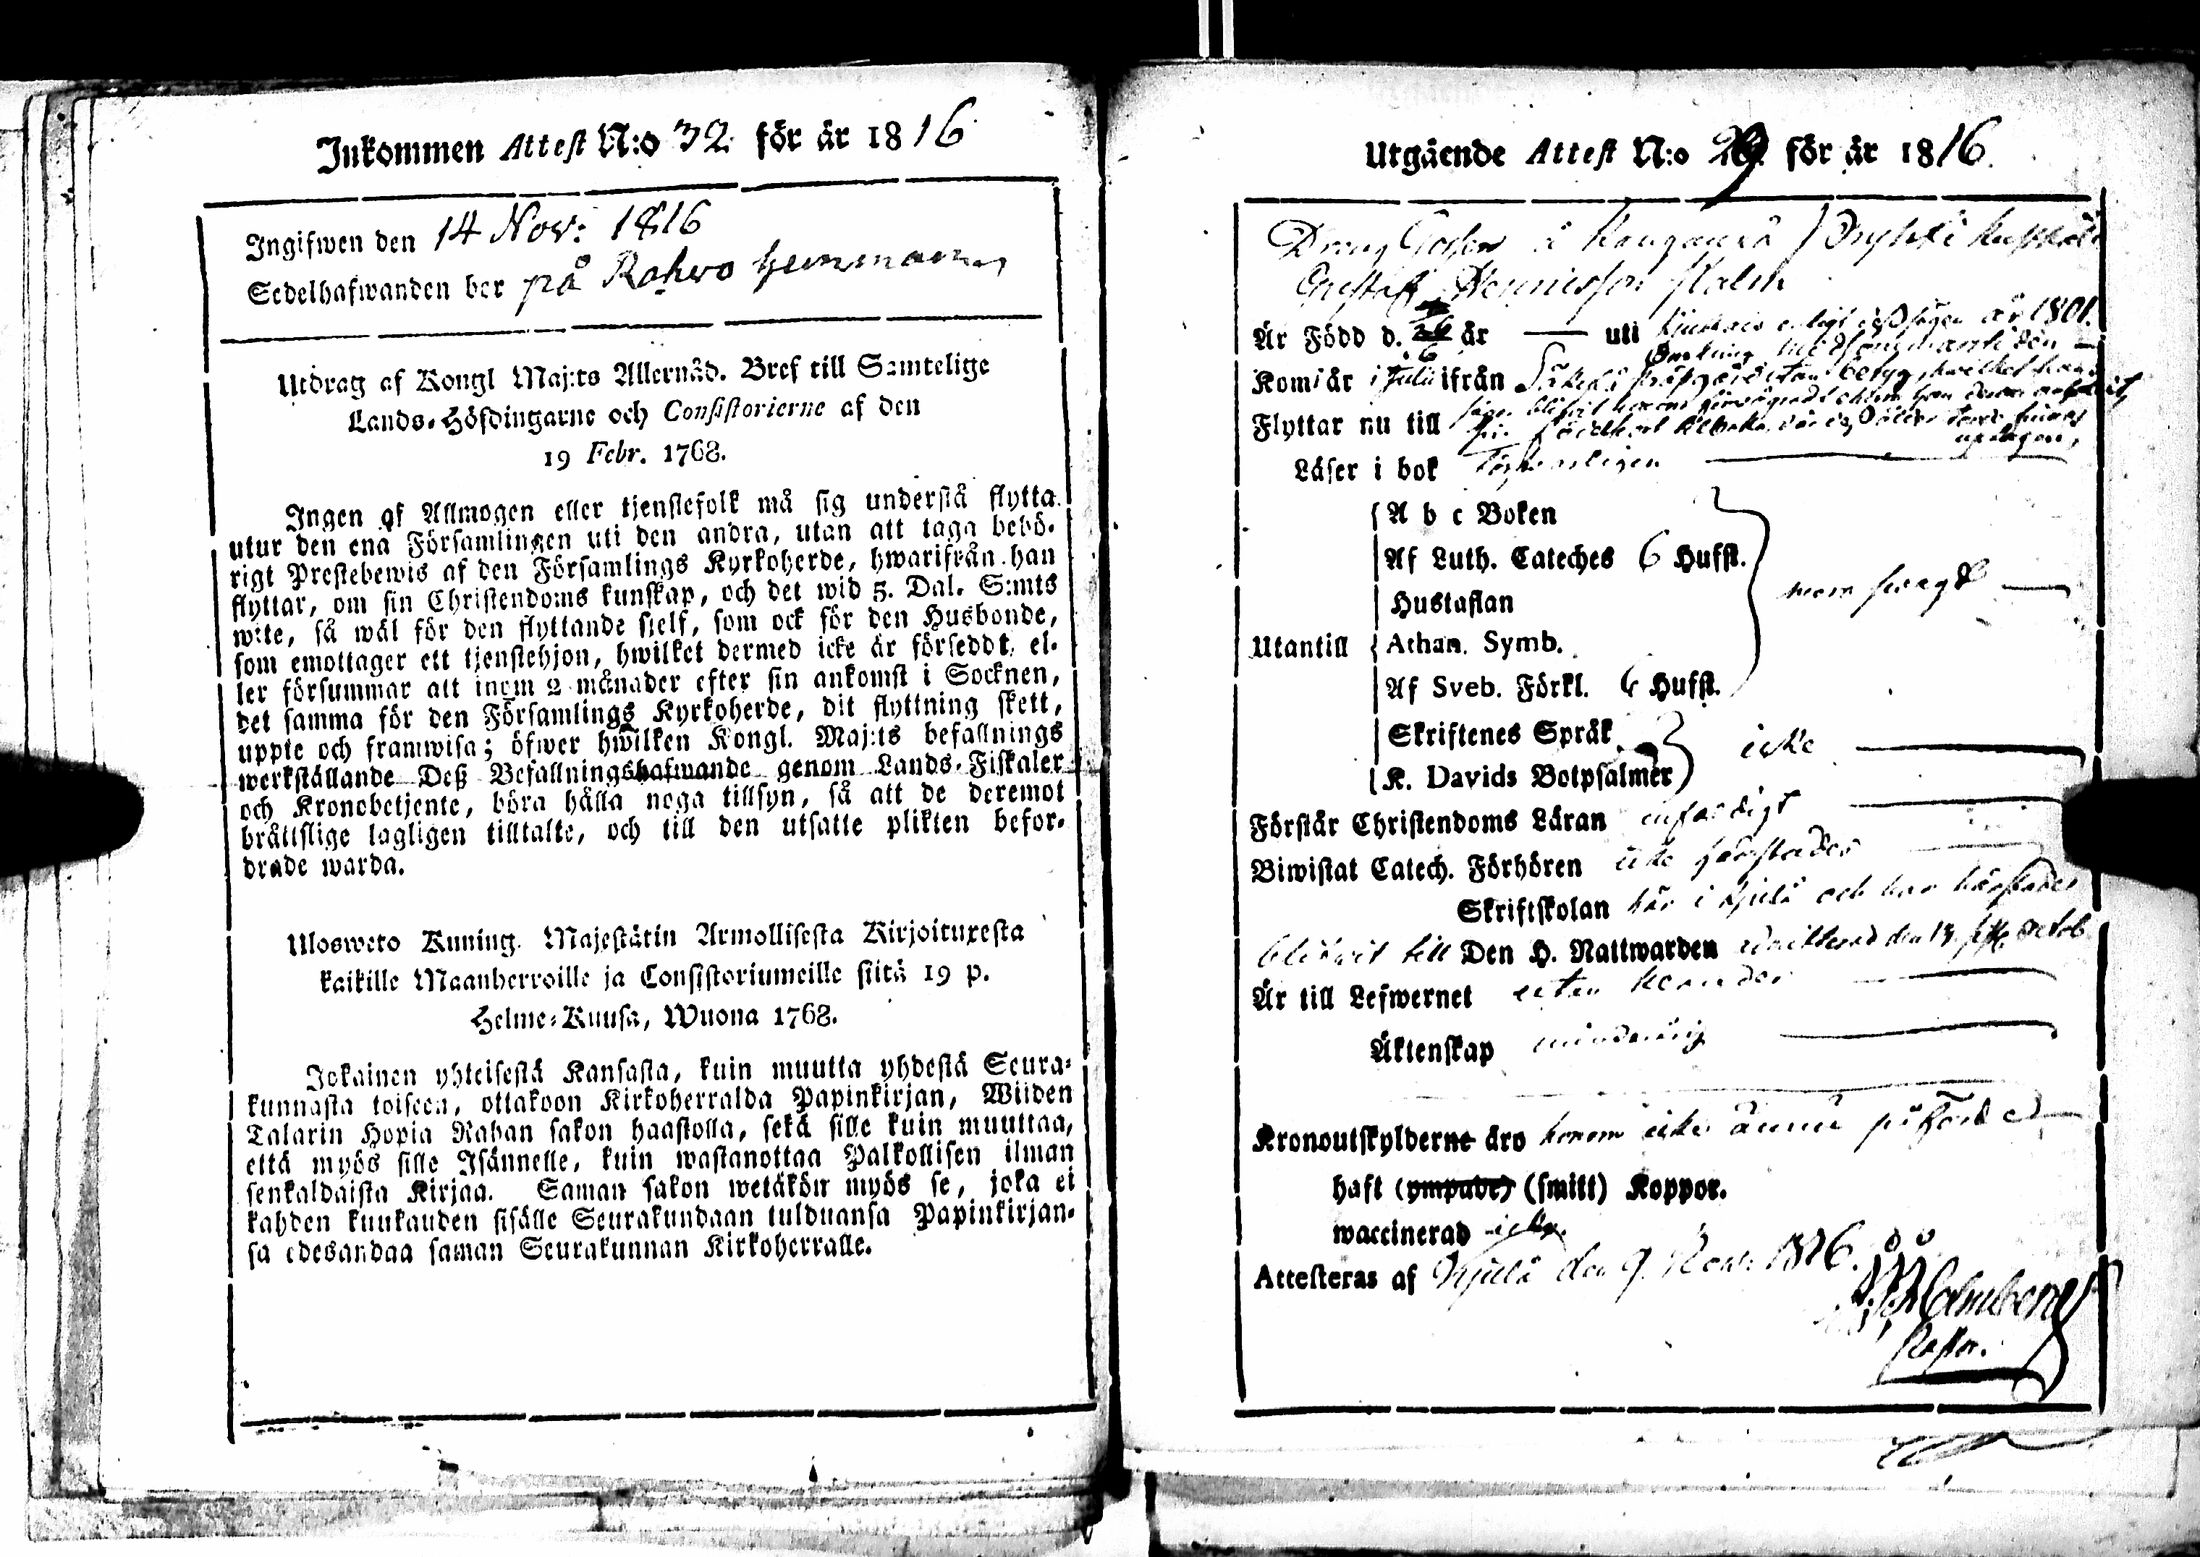 Inkommen Attest N:o 32. för år 1816
Ingifwen den 14 Nov: 1816
Sedelhafwanden bor på Rahvo hemman
Utdrag af Kongl Maj:ts Allernåd. Bref till Samtelige
Lands-Höfdingarne och Consistorierne af den
19 Febr. 1768.
Ingen af Allmogen eller tjenstefolk må sig understå flytta
utur den ena Församlingen uti den andra, utan att taga behö-
rigt Prestebewis af den Församlings Kyrkoherde, hwarifrån han
flyttar, om sin Christendoms kunskap, och det wid 5. Dal. S:mts
wite, så wäl för den flyttande sielf, som ock för den Husbonde,
som emottager ett tjenstehjon, hwilket dermed icke är förseddt, el-
ler försummar att inom 2 månader efter sin ankomst i Socknen,
det samma för den Församlings Kyrkoherde, dit flyttning skett,
uppte och framwisa; öfwer hwilken Kongl. Maj:ts befallnings
werkställande Deß Befallningshafwande genom Lands-Fiskaler
och Kronobetjente, böra hålla noga tillsyn, så att de deremot
bråttslige lagligen tilltalte, och till den utsatte plikten befor-
drade warda.
Ulosweto Kuning. Majestätin Armollisesta Kirjoituxesta
kaikille Maanherroille ja Consistoriumeille siitä 19 p.
Helme-Kuusa, Wuona 1768.
Jokainen yhteisestä Kansasta, kuin muutta yhdestä Seura-
kunnasta toiseen, ottakoon Kirkoherralda Papinkirjan, Wiiden
Talarin Hopia Rahan sakon haastolla, sekä sille kuin muuttaa,
että myös sille Isännelle, kuin wastanottaa Palkollisen ilman
senkaldaista Kirjaa. Saman sakon wetäkön myös se, joka ei
kahden kuukauden sisälle Seurakundaan tulduansa Papinkirjan-
sa edesandaa saman Seurakunnan Kirkoherralle.
Utgående Attest N:o 29. för år 1816.
Dräng
Gustaf Malm
Är Född d. år — uti enligt år 1801.
Kom i år i Juli ifrån
Flyttar nu till
Läser i bok försvarligen
A b c Boken
Af Luth. Cateches 6 Hufst.
Hustaflan
Utantill Athan. Symb.
Af Sveb. Förkl. 6 Hufst.
Skriftenes Språk icke
K. Davids Botpsalmer
Förstår Christendoms Läran enfaldigt
Biwistat Catech. Förhören icke härstädes
Skriftskolan här i Kjulo och har härstädes
blifvit till Den H. Nattwarden admitterad den 13. Octob.
Är till Lefwernet utan
Äktenskap minderårig
Kronoutskylderne äro honom icke ännu påförde
haft (ympade) (smitt) Koppor.
waccinerad icke.
Attesteras af Kjulo den 9. Nov: 1816.
Malmberg
Pastor.